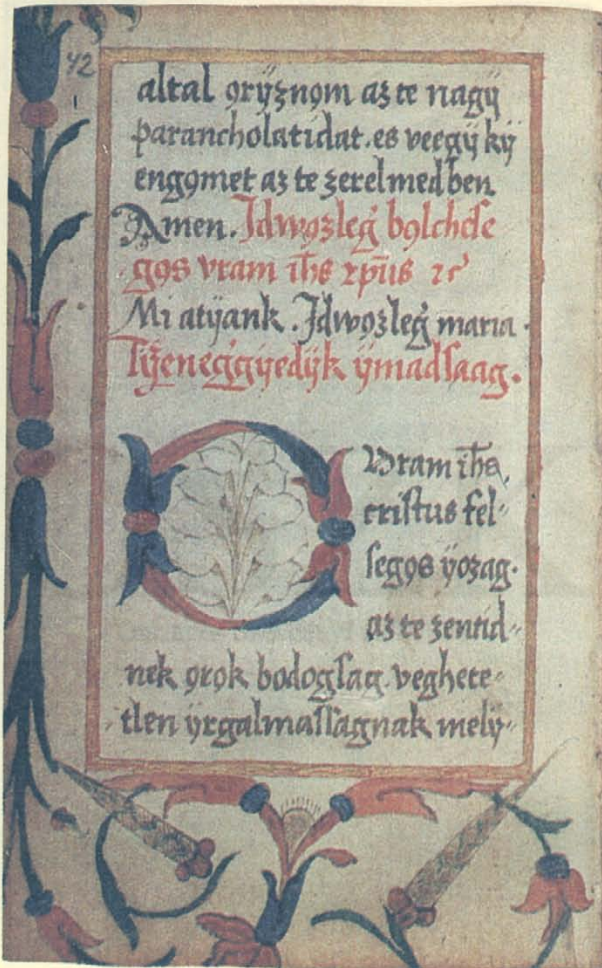 42
altal ǫrÿznǫm az te nagÿ
parancholatidat. es veegÿ kÿ
engǫmet az te zerelmedben
Amen. Jdwǫzleǵ bǫlchese
gǫs vram ih̄s xp̄us ꝛc̄
Mi atÿank. Jdwǫzleǵ maria.
Tÿzeneǵgÿedÿk ÿmadſaag.
O Vram ih̄s,
criſtus fel-
ſegǫs ÿozag.
az te zentid-
nek ǫrǫk bodogſag. veghete-
tlen ÿrgalmaſſagnak melÿ-